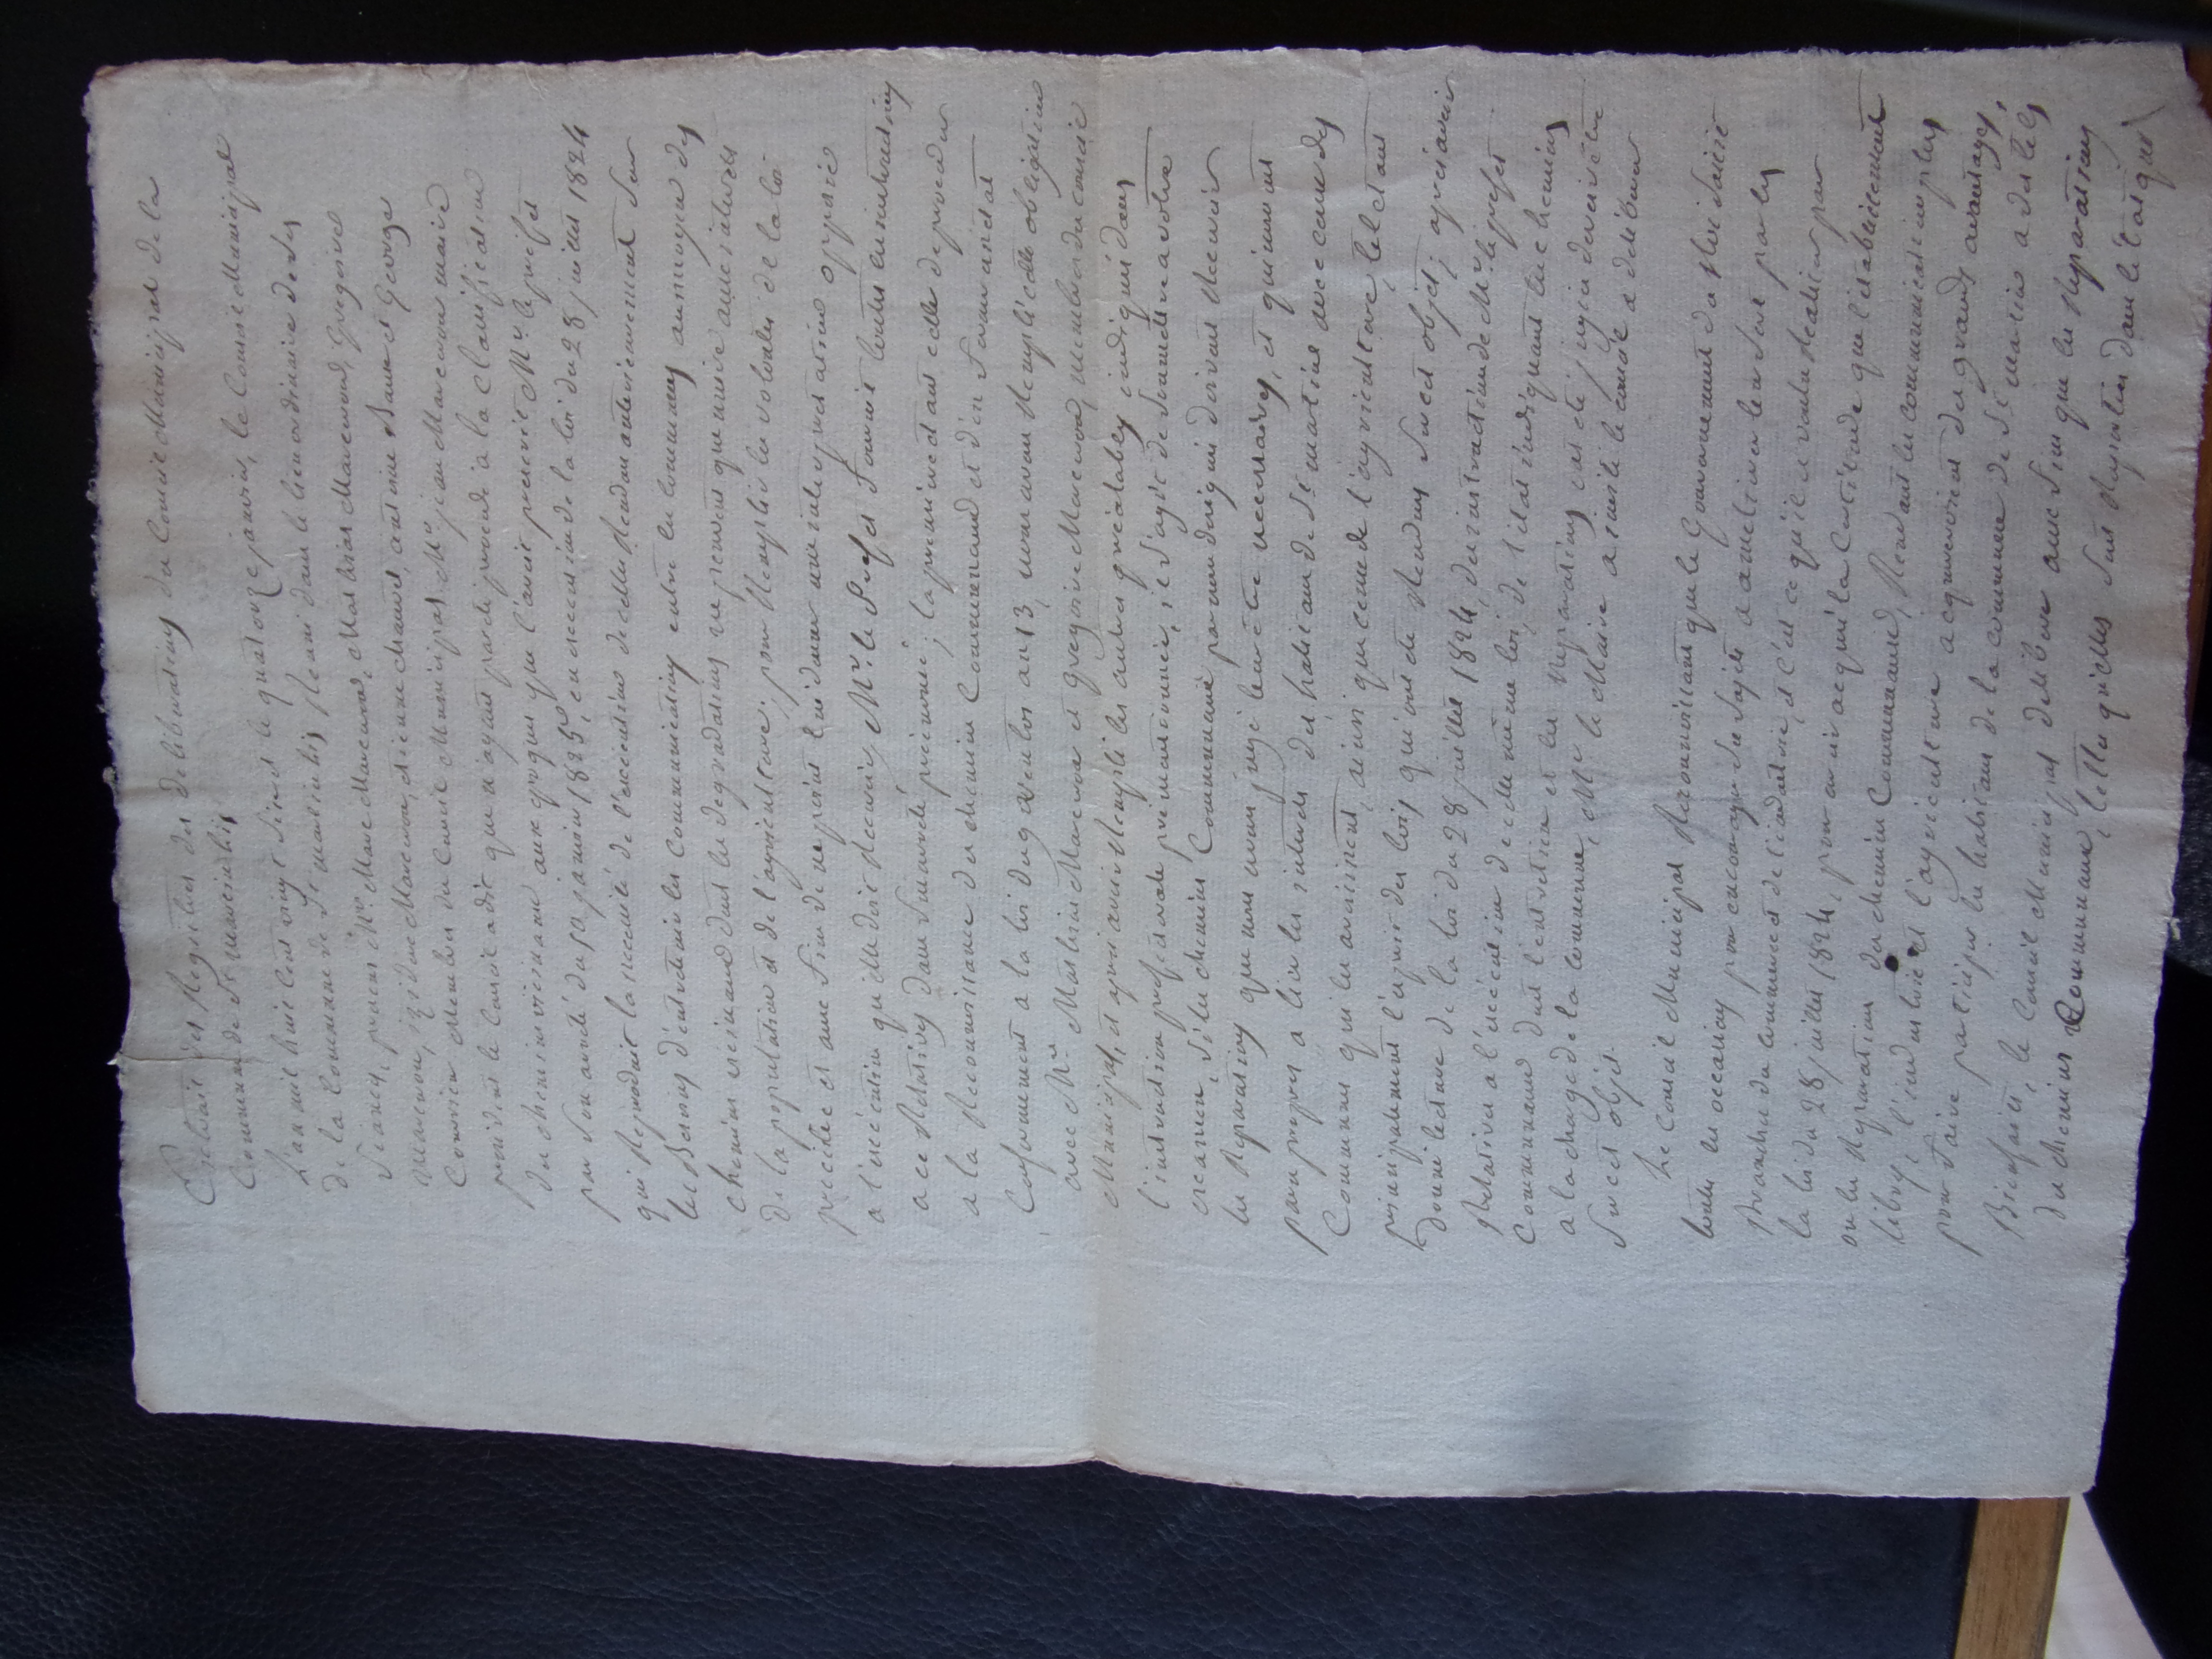 Extrait des Regretres des deliberations du Conseil Municipal de la
Commune de St martin his
L'an mil huit Cent vingt Six et le quatorze janvier, le Conseil Municipal
de la Commune de St martin his Reuni dans le lieu ordinaire de Ses
Seances, presens Mrs. Marc Marcerou, Mathias Marcerou, Gregoire
Marcerou, izidore Marcerou, etienne Chauvet, antoine Baux et George
Couvrier Membres du Conseil Municipal. Mr. jean Marcerou maire
president le Conseil a dit que n'ayant pas été procedé a la Classification
des chemins vicinaux aux epoques que l'avait prescrit Mr. le préfet
par Son arreté du 10 janvier 1825, en execution de la loi du 28 juillet 1824
qui Reproduit la necessité de l'execution de celles Rendues anterieurement Sur
les Besoins d'entretenir les Communications entre les Communes au moyen des
chemins vicinaux dont les degradations ne peuvent que nuire aux interets
de la population et de l'agriculture; pour Remplir les volontés de la loi
precitée et aux fins de ne point lui donner une interpretation opposée
a l'exécution qu'elle doit Recevoir, Mr. le Prefet Fournit toutes les instructions
a ce Relatives dans Son arreté préénoncé; la premiere etant celle de proceder
a la Reconnoissance des chemins Communaux et d'en Former un etat
Conformement a la loi du 9 ventos an 13, nous avons Rempli cette obligation
avec Mrs Mathias Marcerou et Gregoire Marcerou, membres du conseil
Municipal, et après avoir Rempli les autres préalables indiqués dans
l'instruction prefectorale prémentionnée, il S'agit de Soumettre a votre
examen, Si les chemins Communaux par nous designés doivent Recevoir
les Reparations que nous avons jugé leur être necessaires, et qui nous ont
paru propres a lier les interets des habitans de St martin avec ceux des
Communes qui les avoisinent, ainsi que ceux de l'agriculture, tel etant
principalement l'esprit des lois qui ont été Rendues Sur cet objet; après avoir
donné lecture de la loi du 28 juillet 1824, des instructions de Mr. le prefet
Relatives a l'exécution de cette même loi, de l'etat indiquant les chemins
Communaux dont l'entretien et les Reparations ont été jugées devoir être
a la charge de la commune, Mr. le Maire a invité le conseil a deliberer
Sur cet objet.
Le Conseil Municipal Reconnoissant que le Gouvernement du Roi Saisit
toutes les occasions pour encourager Ses Sujets a ameliorer leur Sort par les
Branches du commerce et de l'industrie, et c'est ce qu'il a voulu Realiser par
la loi du 28 juillet 1824, pour avoir acquis la Certitude que l'etablissement
ou les Reparations des chemins Communaux, Rendant les communications plus
libres, l'industrie et l'agriculture acquereroient des grands avantages,
pour Faire participer les habitans de la commune de St martin a des tels
Bienfaits, le Conseil Municipal delibere aux fins que les Reparations
des chemins Communaux, telles qu'elles Sont Raportées dans l'état que